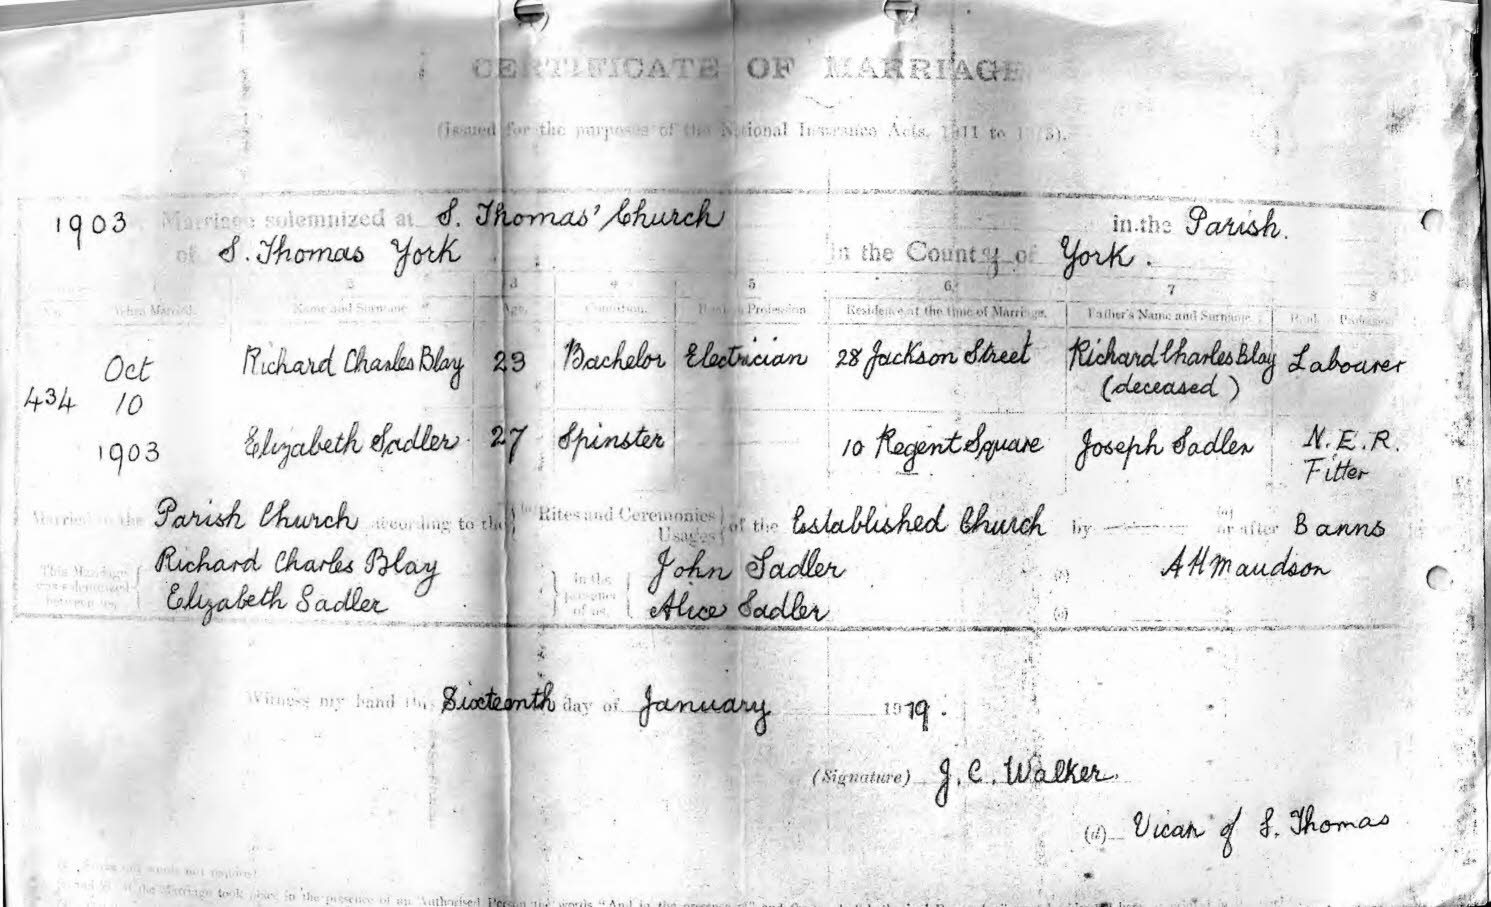 CERTIFICATE OF MARRIAGE
(Issued for the purposes of the National Insurance Acts, 1911 to 1918).
1903 Marriage solemnized at S. Thomas' Church in the Parish.
of S. Thomas York in the County of York.
1 2 3 4 5 6 7 8
No. When Married. Name and Surname Age. Condition. Rank Profession Residence at the time of Marriage. Father's Name and Surname. Rank Profession
Oct Richard Charles Blay 23 Bachelor Electrician 28 Jackson Street Richard Charles Blay Labourer
434 10 (deceased)
1903 Elizabeth Sadler 27 Spinster 10 Regent Square Joseph Sadler N.E.R.
Fitter
Married in the Parish Church according to the Rites and Ceremonies of the Established Church by or after Banns
Usages
This Marriage was solemnized between us, Richard Charles Blay in the presence of us, John Sadler (c) A H Maudson
Elizabeth Sadler Alice Sadler (c)
Witness my hand this Sixteenth day of January 1919.
(Signature) J. C. Walker.
(d) Vicar of S. Thomas
words not required
of the Marriage took place in the presence of an Authorised Person the words "And in the presence